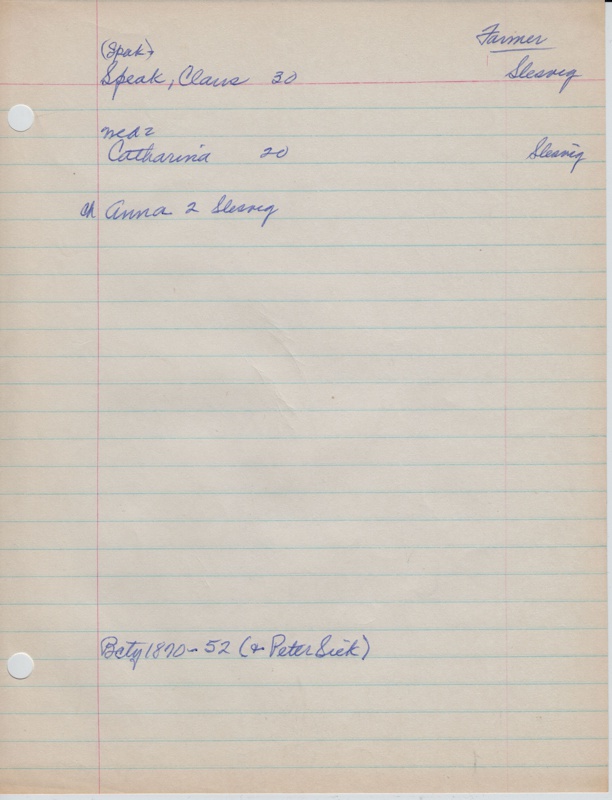 Farmer
(Spak)
Speak, Claus 30 Slesvig
Catharina 20 Slesvig
ch Anna 2 Slesvig
Bcty 1870 - 52 (+ Peter Sick)